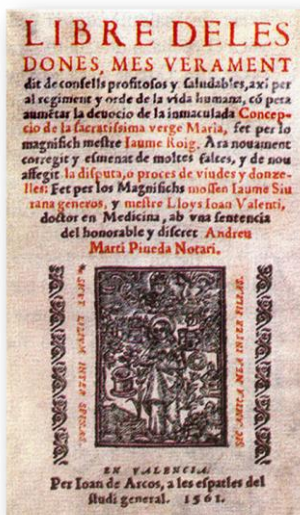 LIBRE DELES
DONES, MES VERAMENT
dit de consells profitosos y saludables, axi per
al regiment y orde de la vida humana, cõ pera
aumẽtar la deuocio de la inmaculada Concep-
cio de la sacratissima verge Maria, fet per lo
magnifich mestre Iaume Roig. Ara nouament
corregit y esmenat de moltes faltes, y de nou
affegit la disputa, o proces de viudes y donze-
lles: Fet per los Magnifichs mossen Iaume Siu
rana generos, y mestre Lloys Ioan Valenti,
doctor en Medicina, ab vna sentencia
del honorable y discret Andreu
Marti Pineda Notari.
SICVT LILIVM INTER SPINAS.
SIC AMICA MEA INTER FILIAS.
EN VALENCIA.
Per Ioan de Arcos, a les espatles del
studi general. 1561.